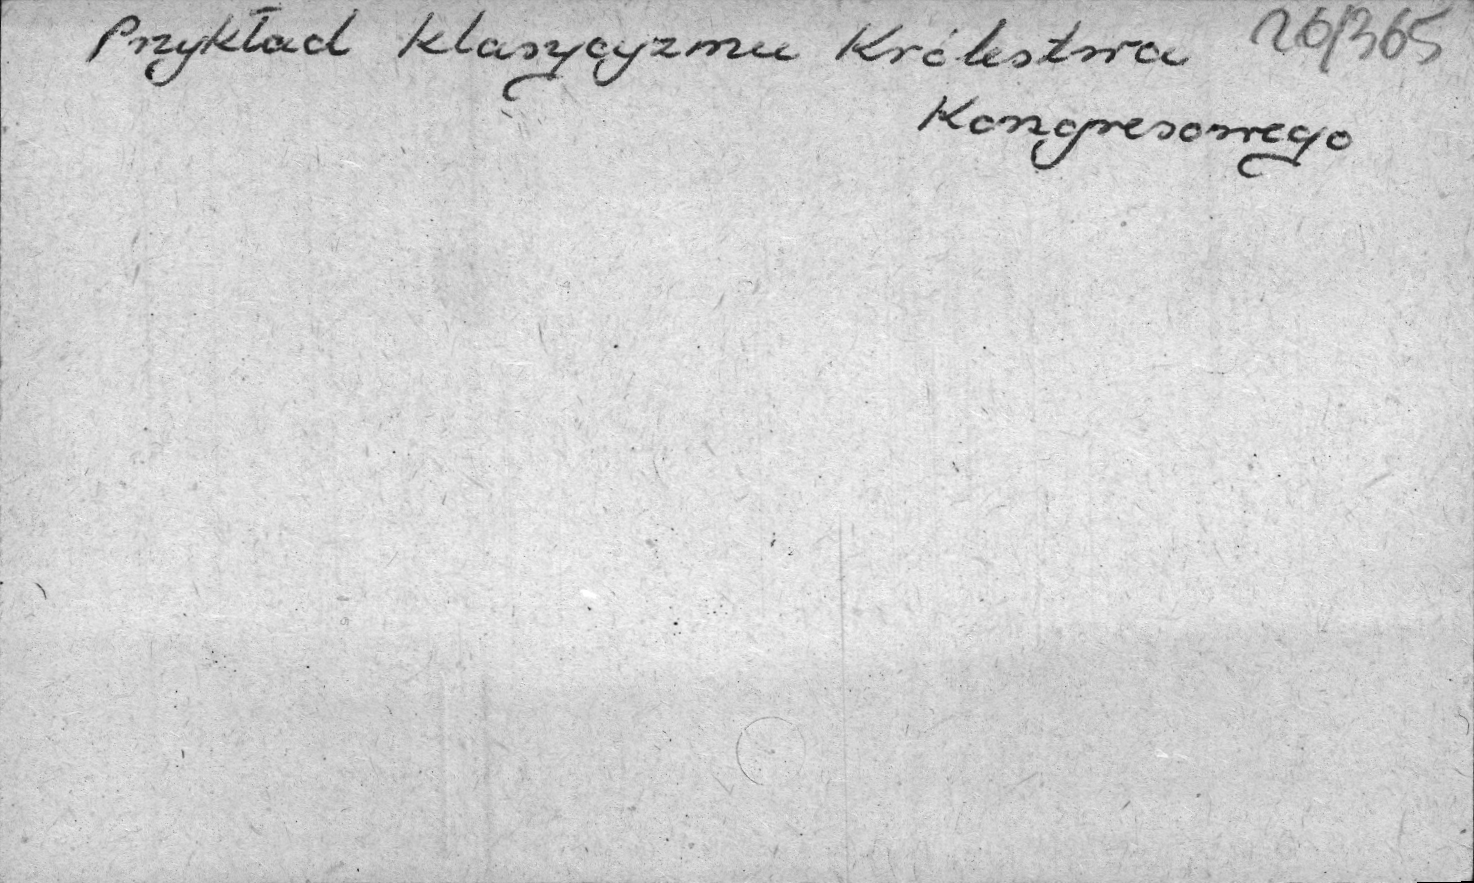 Przykład klasycyzmu Królestwa 26/365
Kongresowego